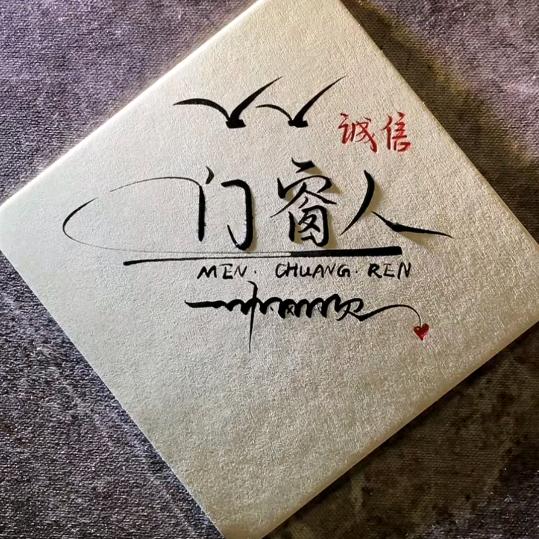 诚信
门窗人
MEN. CHUANG. REN
一帆风顺